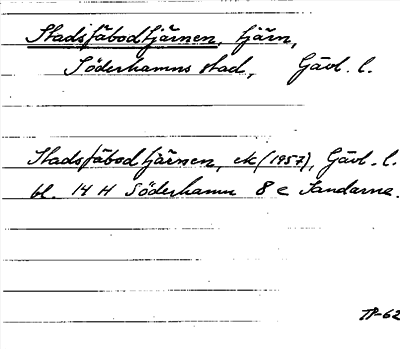 Stadsfäbodtjärnen, tjärn,
Söderhamns stad, Gävl. l.
Stadsfäbodtjärnen, ek (1957), Gävl. l.
bl. 14 H Söderhamn 8 e Sandarne.
TP-62